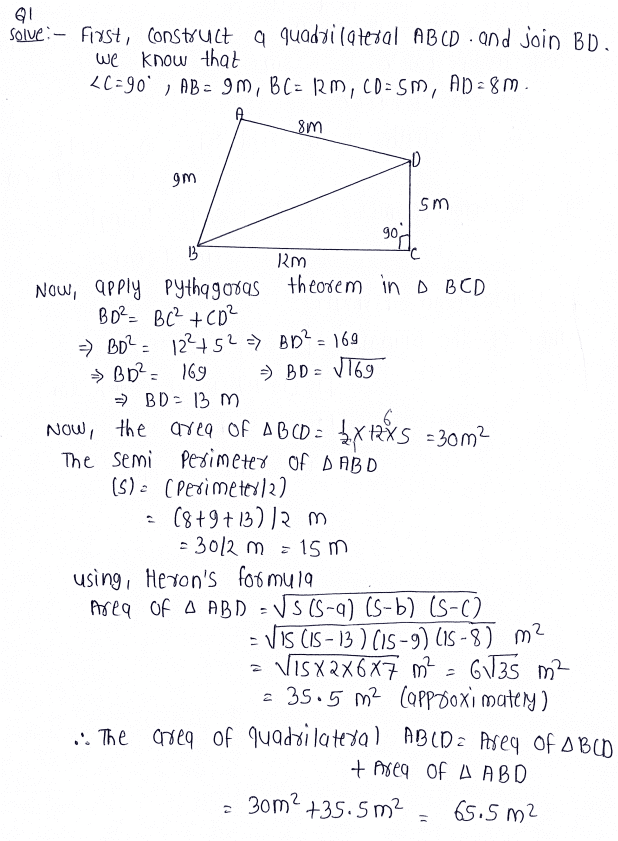 Q1
Solve:- First, construct a quadrilateral ABCD. and join BD.
we know that
∠C=90°, AB= 9m, BC= 12m, CD=5m, AD=8m.
A
8m
D
9m
5m
90°
B
12m
C
Now, apply Pythagoras theorem in Δ BCD
BD²= BC² + CD²
⇒ BD² = 12²+5² ⇒ BD² = 169
⇒ BD² = 169 ⇒ BD = √169
⇒ BD= 13 m
Now, the area of ΔBCD= 1/2 × 12 6 × 5 =30m²
The semi Perimeter of ΔABD
(S)= (Perimeter/2)
= (8+9+13)/2 m
= 30/2 m = 15 m
using, Heron's formula
Area of Δ ABD = √S(S-a) (S-b) (S-C)
= √15(15-13)(15-9)(15-8) m²
= √15×2×6×7 m² = 6√35 m²
= 35.5 m² (approximately)
∴ The area of quadrilateral ABCD= Area of ΔBCD
+ Area of Δ ABD
= 30m² +35.5m² = 65.5 m²